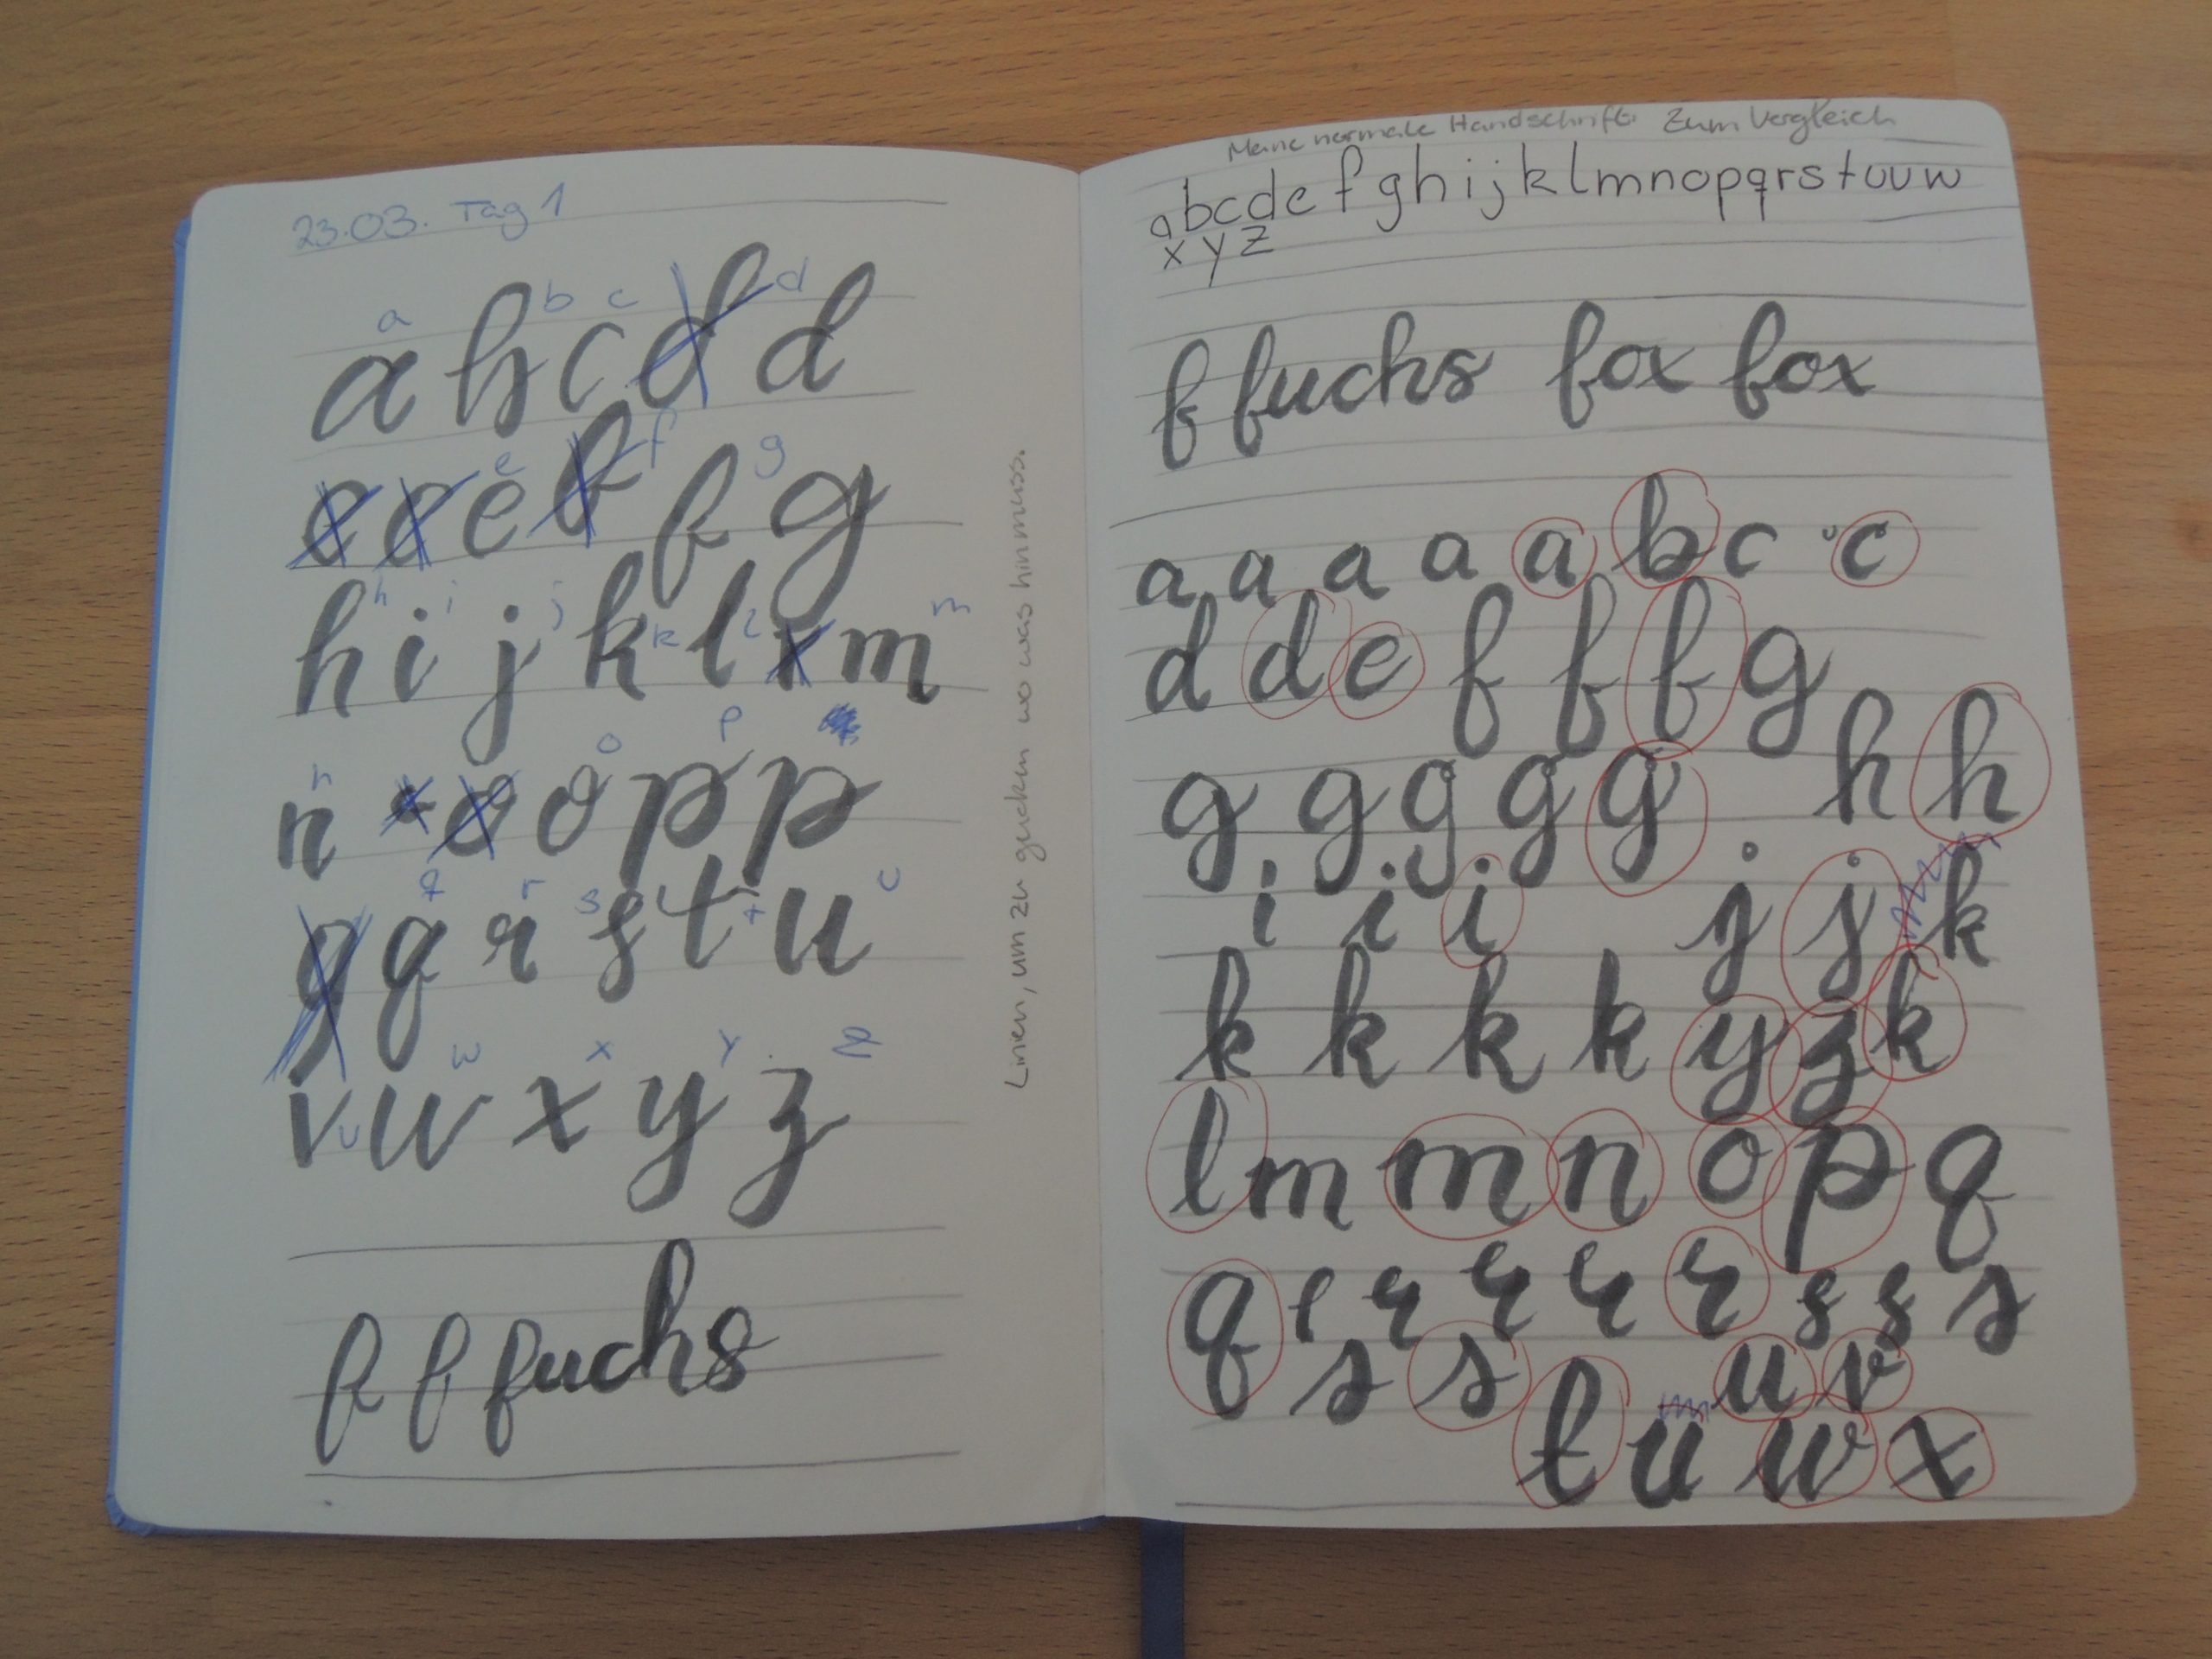 23.03. Tag 1
a b c d
a b c d d
e f g
e e e f f g
h i j k l m
h i j k l x m
n o p
n o o o p p
q r s t u
g q r s t u
v w x y z
v w x y z
f f fuchs
Linien, um zu gucken wo was hinmuss.
Meine normale Handschrift Zum Vergleich
abcdefghijklmnopqrstuvw
xyz
f fuchs fox fox
a a a a a b c c
d d e f f f g
g g g g g h h
i i i j j k
k k k k y z k
l m m n o p q
q r r r r r s s s
s s u v
t u w x